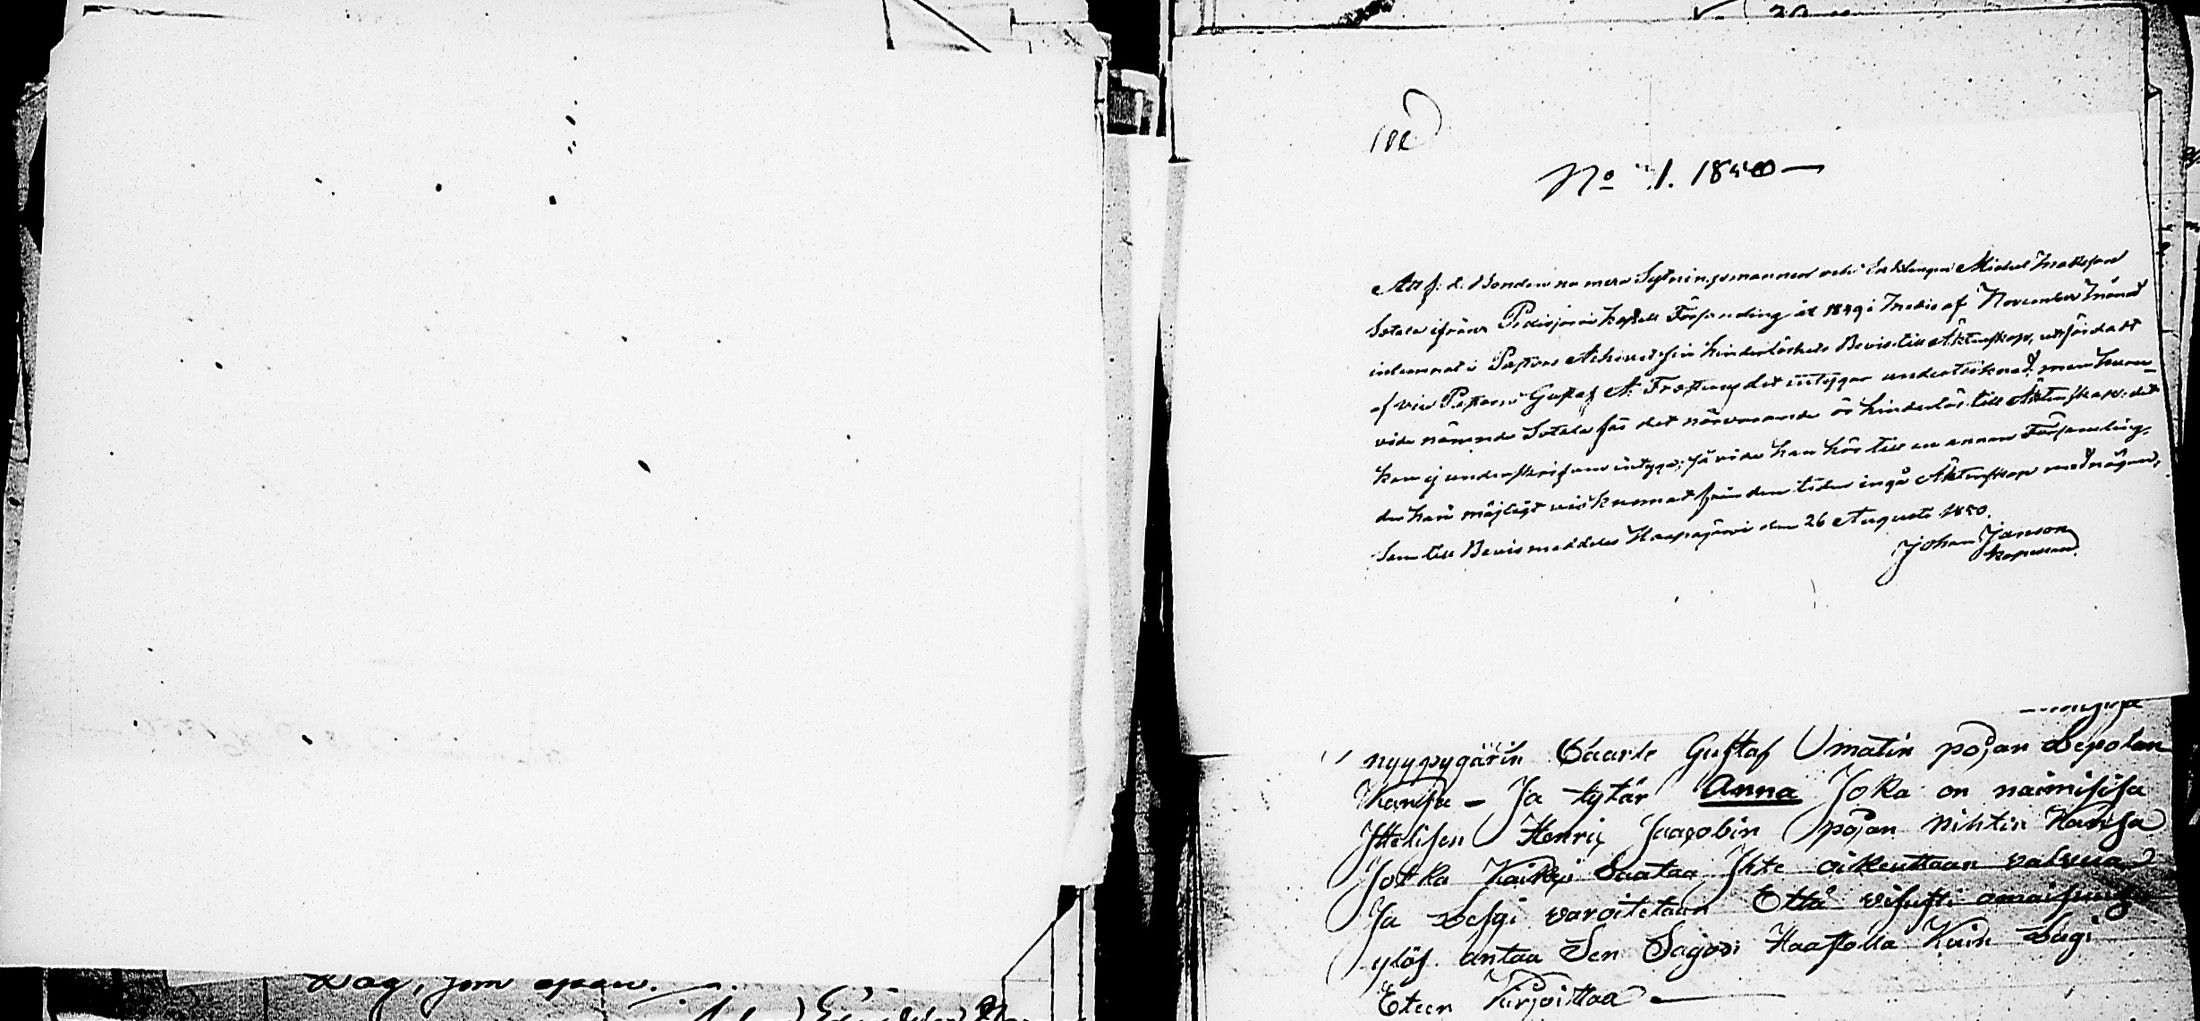 No 71. 1850
Att f. d. Bonden numera Sytningsmannen och Enklingen Michel Mattsson
Sotala ifrån Pidisjärvi kapell Församling åt 1849 i medio af November månad
inlemnat i Pastors Achivet sin hinderlöshets Bevis till Äktenskap, utfärdadt
af vice Pastorn Gustaf A. Frosterus det intygar undertecknad; men huru-
vida nämnde Sotala för det närvarande är hinderlös till Äktenskap: det
kan ej underskrifven intyga, så vida han hör till en annan Församling,
der han möjligt vis kunnat från den tiden ingå Äktenskap med någon,
Som till Bevis meddeles Haapajärvi den 26 Augusti 1850.
Johan Janson
kapellan
nyypygärin Caarle Gustaf Umatin pojan Lepolan
Kansa – Ja tytär Anna Joka on naimisisa
Ittelisen Henric Jaacobin pojan Nihtin Kansa
Jotka Kaikki Saataa Itte oikeuttaan valvua
Ja Leski varoitetaan Että visusti omaisuus
ylös antaa Sen Sagoi Haastolla Kuin Lagi
Eteen Kirjoittaa
Dag, som ofvan.